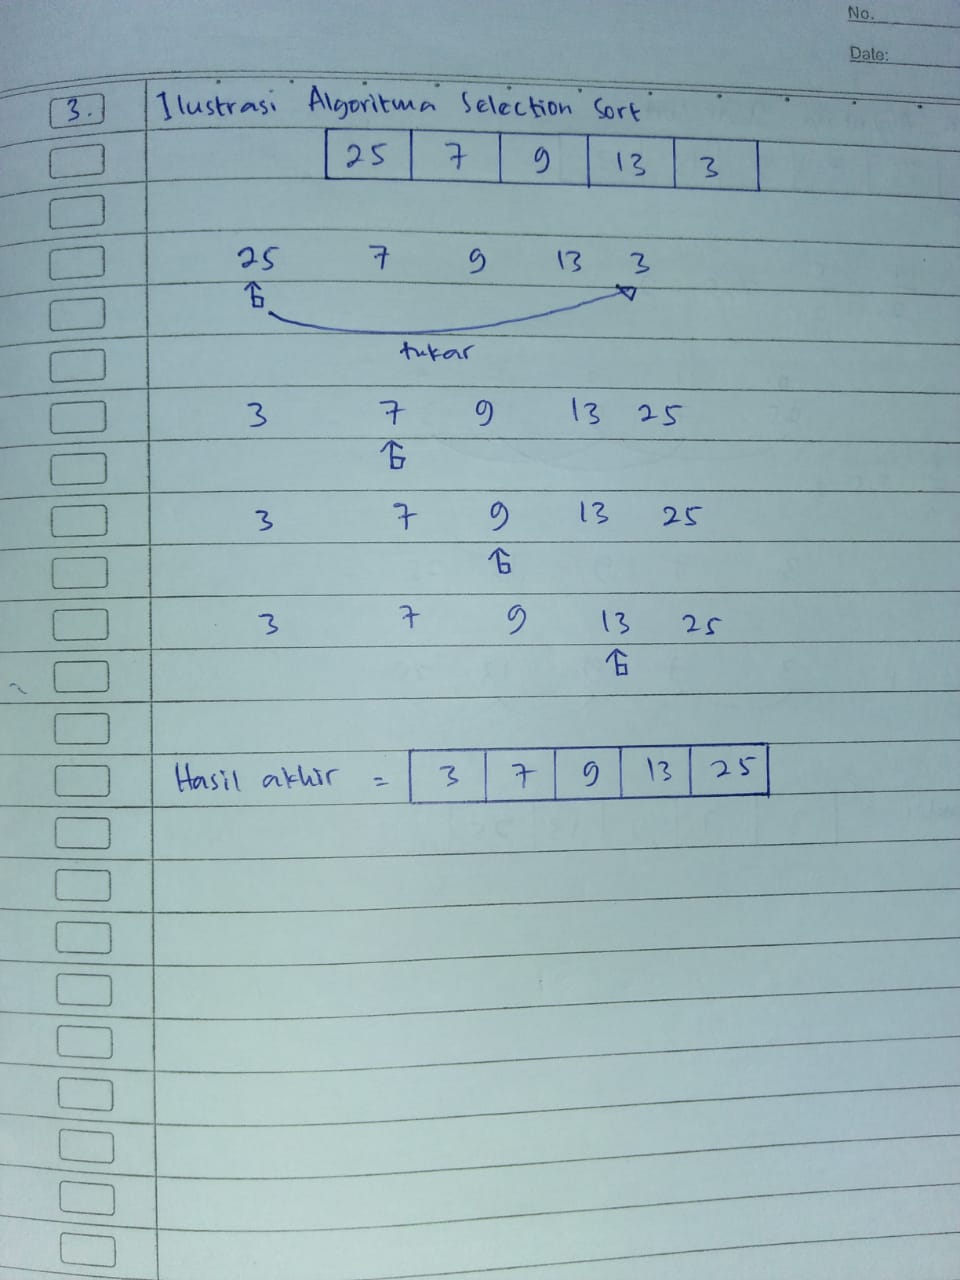 No.
Date:
3. Ilustrasi Algoritma Selection Sort
25 7 9 13 3
25 7 9 13 3
tukar
3 7 9 13 25
3 7 9 13 25
3 7 9 13 25
Hasil akhir = 3 7 9 13 25